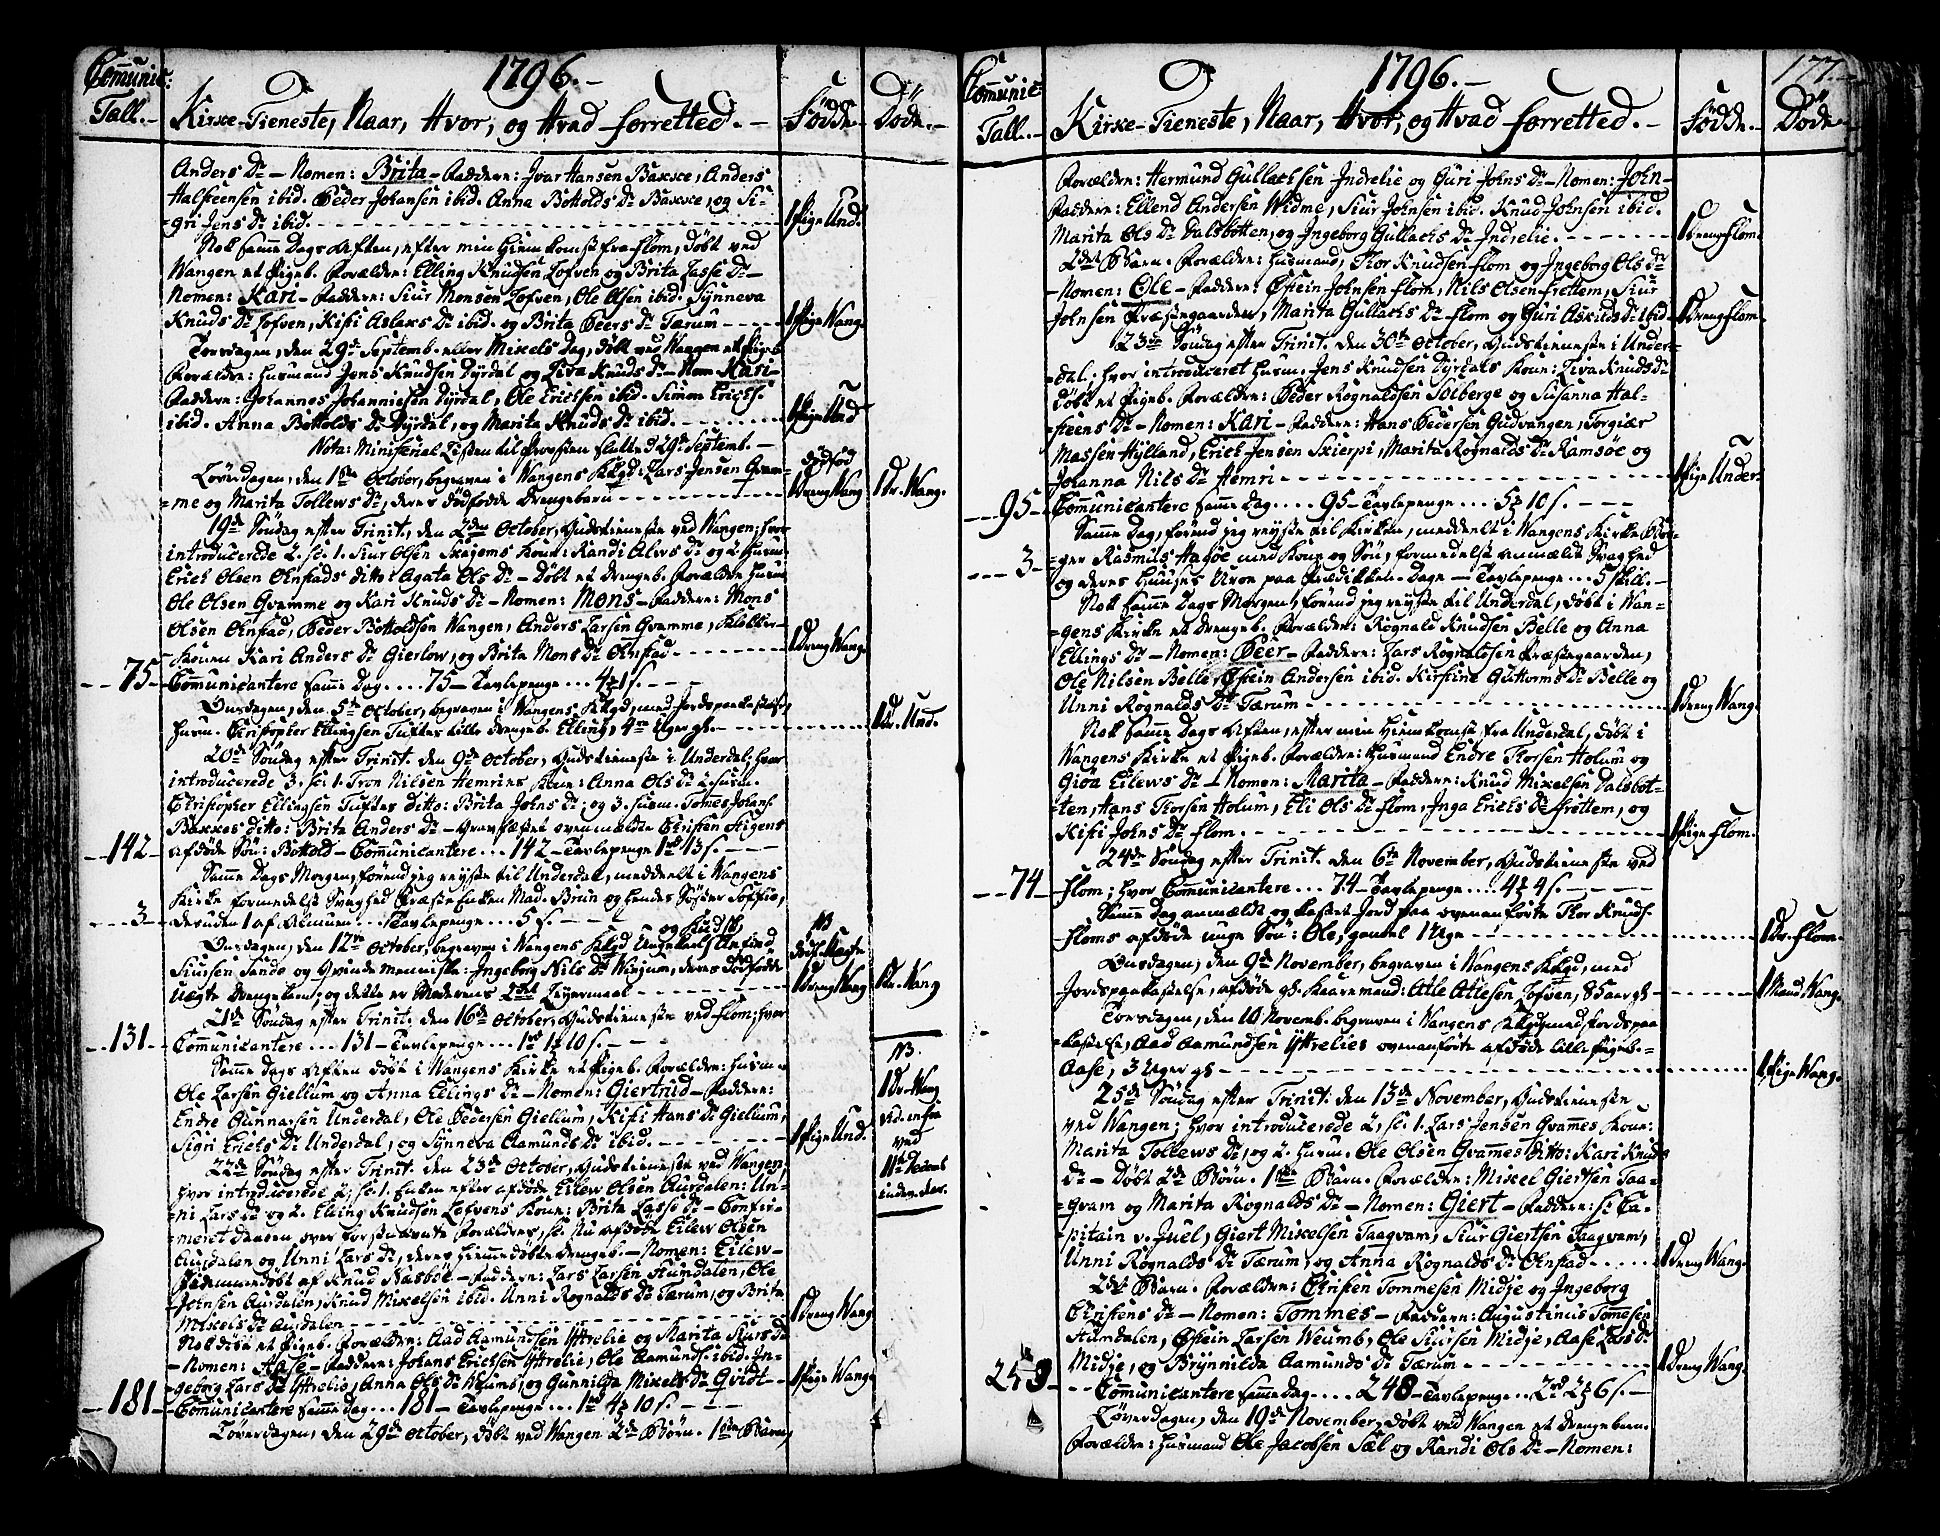 Communic: Tall.
1796.
Kirke-Tieneste, Naar, Hvor, og Hvad forretted.
Fødde.
Døde.
Anders Dr. Nomen: Brita. Faddere: Ivar Hansen Backe, Anders
Halsteensen ibid. Peder Johansen ibid. Anna Bottolds Dr. Backe, og Si-
gri Jens Dr. ibid. 1 Pige Und.
Nok samme Dags Aften, efter min Hiemkomst fra Flom, døbt ved
Wangen et Pigeb. Forældre: Elling Knudsen Lofven og Brita Lasse Dr.
Nomen: Kari. Faddere: Siur Monsen Lofven, Ole Olsen ibid. Synneva
Knuds Dr. Lofven, Kisti Aslaks Dr. ibid. og Brita Peers Dr. Tærum 1 Pige Wang.
Torsdagen, den 29de Septemb. eller Mikels Dag, døbt ved Wangen et Pigeb.
Forældre: Husmand Jens Knudsen Dyrdal og Liva Knuds Dr. Nom: Kari
Faddere: Johannes Johannessen Dyrdal, Ole Erichsen ibid. Simon Erichs.
ibid. Anna Bottolds Dr. Dyrdal, og Marita Knuds Dr. ibid. 1 Pige Und
Nota: Ministerial Listen til Provsten slutted 29de Septemb.
Løverdagen, den 1ste October, begraven i Wangens Kkgd: Lars Jensen Qvam-
me og Marita Tollews Dr. deres dødfødde Drengebarn dødfød 1 Dreng Wang 1 Dr. Wang.
19de Søndag efter Trinit. den 2den October, Gudstieneste ved Wangen; hvor
introducerede 2. sc. 1. Siur Olsen Skajems Kone: Randi Alews Dr. og 2. Husm.
Erich Olsen Onstads ditto: Agata Ols Dr. Døbt et Drengeb. Forældre Husm.
Ole Olsen Qvamme og Kari Knuds Dr. Nomen: Mons. Faddere: Mons
Olsen Onstad, Peder Bottoldsen Wangen, Anders Larsen Qvamme, Klokker-
konen Kari Anders Dr. Gierlow, og Brita Mons Dr. Onstad 1 Dreng Wang.
75 Communicantere samme Dag.... 75 Tavlepenge... 4 1 s.
Onsdagen, den 5te October, begraven i Wangens Kkgd, med Jordspaakastelse,
Husm. Christopher Ellingsen Tufter lille Drengeb. Elling, 4re Uger gl. 1 Dr. Und.
20de Søndag efter Trinit. den 9de October, Gudstieneste i Underdal; hvor
introducerede 3. sc. 1. Tron Nilsen Hemries Kone: Anna Ols Dr. 2. Husm.
Christopher Ellingsen Tufter ditto: Brita Johns Dr. og 3. Husm. Tomes Johans.
Backes ditto: Brita Anders Dr. Gravfæstet ovenmeldte Christen Stigens
142 afdøde Søn: Bottold. Communicantere... 142 Tavlepenge 1 rd 13 s.
Samme Dags Morgen, førend jeg reyste til Underdal, meddelt i Wangens
Kirke formedelst Svaghed Præste Enken Mad. Bruun og hendes Søster Soffie,
3 desuden 1 af Almuen. Tavlepenge... 5 s.
Onsdagen, den 12te October, begraven i Wangens Kkgd Ungekarl Anfind
Siursen Lande og Qvindemenniske Ingeborg Nils Dr. Wirjum, deres Dødfødde
uægte Drengebarn; og dette er Moderens 2det Leyermaal 1 Dreng Wang 1 Dr. Wang
21de Søndag efter Trinit. den 16de October, Gudstieneste ved Flom; hvor
131 Communicantere... 131 Tavlepenge... 1 rd 1 10 s.
Samme Dags Aften døbt i Wangens Kirke et Pigeb. Forældre: Husm.
Ole Larsen Giellum og Anna Ellings Dr. Nomen: Giertrud. Faddere:
Endre Gunnarsen Underdal, Ole Pedersen Giellum, Kisti Hans Dr. Giellum,
Sigri Erichs Dr. Underdal, og Synneva Aamunds Dr. ibid. 1 Pige Und.
NB. 1 Dr. Wang vid. infra ved 11te Decemb.
22de Søndag efter Trinit. den 23de October, Gudstieneste ved Wangen,
hvor introducerede 2, sc. 1. Enken efter afdøde Eilew Olsen Aurdalen: Un-
ni Lars Dr. og 2. Elling Knudsen Lofvens Kone: Brita Lasse Dr. Confir-
meret Daaben over forommeldte Forældres, sc. nu afdøde Eilew Olsen
Aurdalen og Unni Lars Dr. deres Hiemmedøbte Drengeb. Nomen: Eilew
Hiemmedøbt af Knud Næsbøe. Faddere: Lars Larsen Humdalen, Ole
Johnsen Aurdalen, Knud Mikelsen ibid. Unni Rognalds Dr. Tærum, og Brita
Mikels Dr. Aurdalen 1 Dreng Wang
Nok døbt et Pigeb. Forældre: Aad Aamundsen Ytrelie og Marita Siurs Dr.
Nomen: Aase. Faddere: Johans Erichsen Ytrelie, Ole Aamunds. ibid. In-
geborg Lars Dr. Ytrelie, Anna Ols Dr. Weums, og Gunnilda Mikels Dr. Qvidt 1 Pige Wang
181 Communicantere samme Dag... 181 Tavlepenge... 1 rd 4 10 s.
Løverdagen, den 29de October, døbt ved Wangen 2de Børn. 1ste Barn,
Communic: Tall.
1796.
177.
Kirke-Tieneste, Naar, Hvor, og Hvad forretted.
Fødde.
Døde
Forældre: Hermund Gullachsen Indrelie og Guri Johns Dr. Nomen: John
Faddere: Ellend Andersen Widme, Siur Johnsen ibid. Knud Johnsen ibid.
Marita Ols Dr. Dalsbotten, og Ingeborg Gullachs Dr. Indrelie. 1 Dreng Flom.
2det Barn. Forældre: Husmand, Thor Knudsen Flom og Ingeborg Ols Dr.
Nomen: Ole. Faddere: Østein Johnsen Flom, Nils Olsen Frettem, Siur
Johnsen Præstegaarden, Marita Gullachs Dr. Flom og Guri Askilds Dr. ibid 1 Dreng Flom.
23de Søndag efter Trinit. den 30te October, Gudstieneste i Under-
dal; hvor introduceret Husm. Jens Knudsen Dyrdals Kone: Liva Knuds Dr.
Døbt et Pigeb. Forældre: Peder Rognaldsen Solberge og Susanna Hal-
steens Dr. Nomen: Kari. Faddere: Hans Pedersen Gudvangen, Torgiær
Massen Hylland, Erich Jensen Skierpi, Marita Rognalds Dr. Ramsøe og
Johanna Nils Dr. Hemri 1 Pige Under.
95 Communicantere samme Dag.... 95 Tavlepenge... 5 10 s.
Samme Dag, førend jeg reyste til Kirken, meddelt i Wangens Kirke
3 Rasmus Hagøe med Kone og Søn, formedelst anmeldt Svaghed
og deres Huuses Aron paa Prædikken-Dage. Tavlepenge... 5 skill.
Nok samme Dags Morgen, førend jeg reyste til Underdal, døbt i Wan-
gens Kirke et Drengeb. Forældre: Rognald Knudsen Belle og Anna
Ellings Dr. Nomen: Peer. Faddere: Lars Rognaldsen Præstegaarden,
Ole Nilsen Belle, Østein Andersen ibid. Kirstine Guttorms Dr. Belle og
Unni Rognalds Dr. Tærum 1 Dreng Wang.
Nok samme Dags Aften, efter min Hiemkomst fra Underdal, døbt i
Wangens Kirke et Pigeb. Forældre: Husmand Endre Thorsen Holum og
Giøa Eilews Dr. Nomen: Marita. Faddere: Knud Mikelsen Dalsbot-
ten, Hans Thorsen Holum, Eli Ols Dr. Flom, Inga Erichs Dr. Frettem, og
Kisti Johns Dr. Flom. 1 Pige Flom.
24de Søndag efter Trinit. den 6te November, Gudstieneste ved
74 Flom; hvor Communicantere... 74 Tavlepenge.... 4 4 s.
Samme Dag anmeldt og kastet Jord paa ovenanførte Thor Knuds.
Floms afdøde unge Søn: Ole, gamel 1 Uge 1 Dr. Flom.
Onsdagen, den 9de November, begraven i Wangens Kkgd, med
Jordspaakastelse, afdøde gl. Kaaremand: Atle Atlesen Lofven, 85 aar gl. 1 Mand Wang.
Torsdagen, den 10 Novemb. begraven i Wangens Kkgd med Jordspaa-
kastelse, Aad Aamundsen Ytrelies ovenanførte afdøde lille Pigeb.
Aase, 3 Uger gl. 1 Pige Wang.
25de Søndag efter Trinit. den 13de November, Gudstieneste
ved Wangen; hvor introducerede 2, sc. 1. Lars Jensen Qvames Kone:
Marita Tollews Dr. og 2. Husm. Ole Olsen Qvames ditto: Kari Knuds
Dr. Døbt 2de Børn. 1ste Barn. Forældre: Mickel Giertsen Taa-
gvam og Marita Rognalds Dr. Nomen: Giert. Faddere: sc. Ca-
pitain v. Juel, Giert Mikelsen Taagvam, Siur Giertsen Taagvam,
Unni Rognalds Dr. Tærum, og Anna Rognalds Dr. Onstad 1 Dreng Wang.
2det Barn. Forældre: Christen Tommesen Midje og Ingeborg
Christens Dr. Nomen: Tommes. Faddere: Augustinus Tommesen
Humdalen, Østein Larsen Weumb, Ole Siursen Midje, Aase Lars Dr.
Midje, og Brynnilda Aamunds Dr. Tærum 1 Dreng Wang.
248 Communicantere samme Dag.... 248 Tavlepenge... 2 rd 2 6 s.
Løverdagen, den 19de November, døbt ved Wangen et Drengebarn.
Forældre: Husmand Ole Jacobsen Sæl og Randi Ols Dr. Nomen: